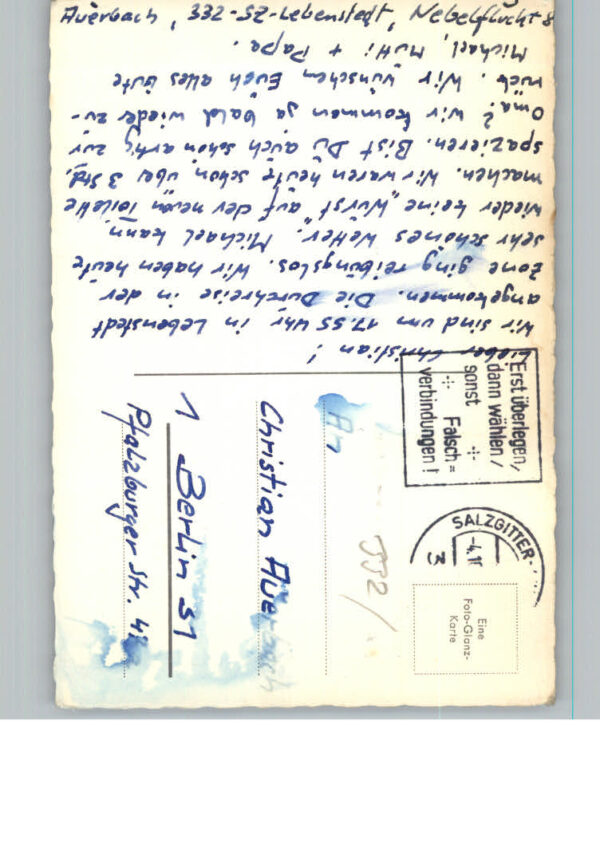 Lieber Christian!
Wir sind um 17.55 Uhr in Lebenstedt
angekommen. Die Durchreise in der
Zone ging reibungslos. Wir haben heute
sehr schönes Wetter. Michael kann
wieder keine "Wurst" auf der neuen Toilette
machen. Wir waren heute schon über 3 Std.
spazieren. Bist Du auch schön artig zur
Oma? Wir kommen ja bald wieder zu-
rück. Wir wünschen Euch alles Gute
Michael, Mutti + Papa.
Auerbach, 332-SZ-Lebenstedt, Nebelflucht 8
Erst überlegen,
dann wählen/
sonst ÷
÷ Falsch=
verbindungen!
SALZGITTER-
-4.10
3
Eine
Foto-Glanz-
Karte
332/
An
Christian Auerbach
1 Berlin 31
Pfalzburger Str.